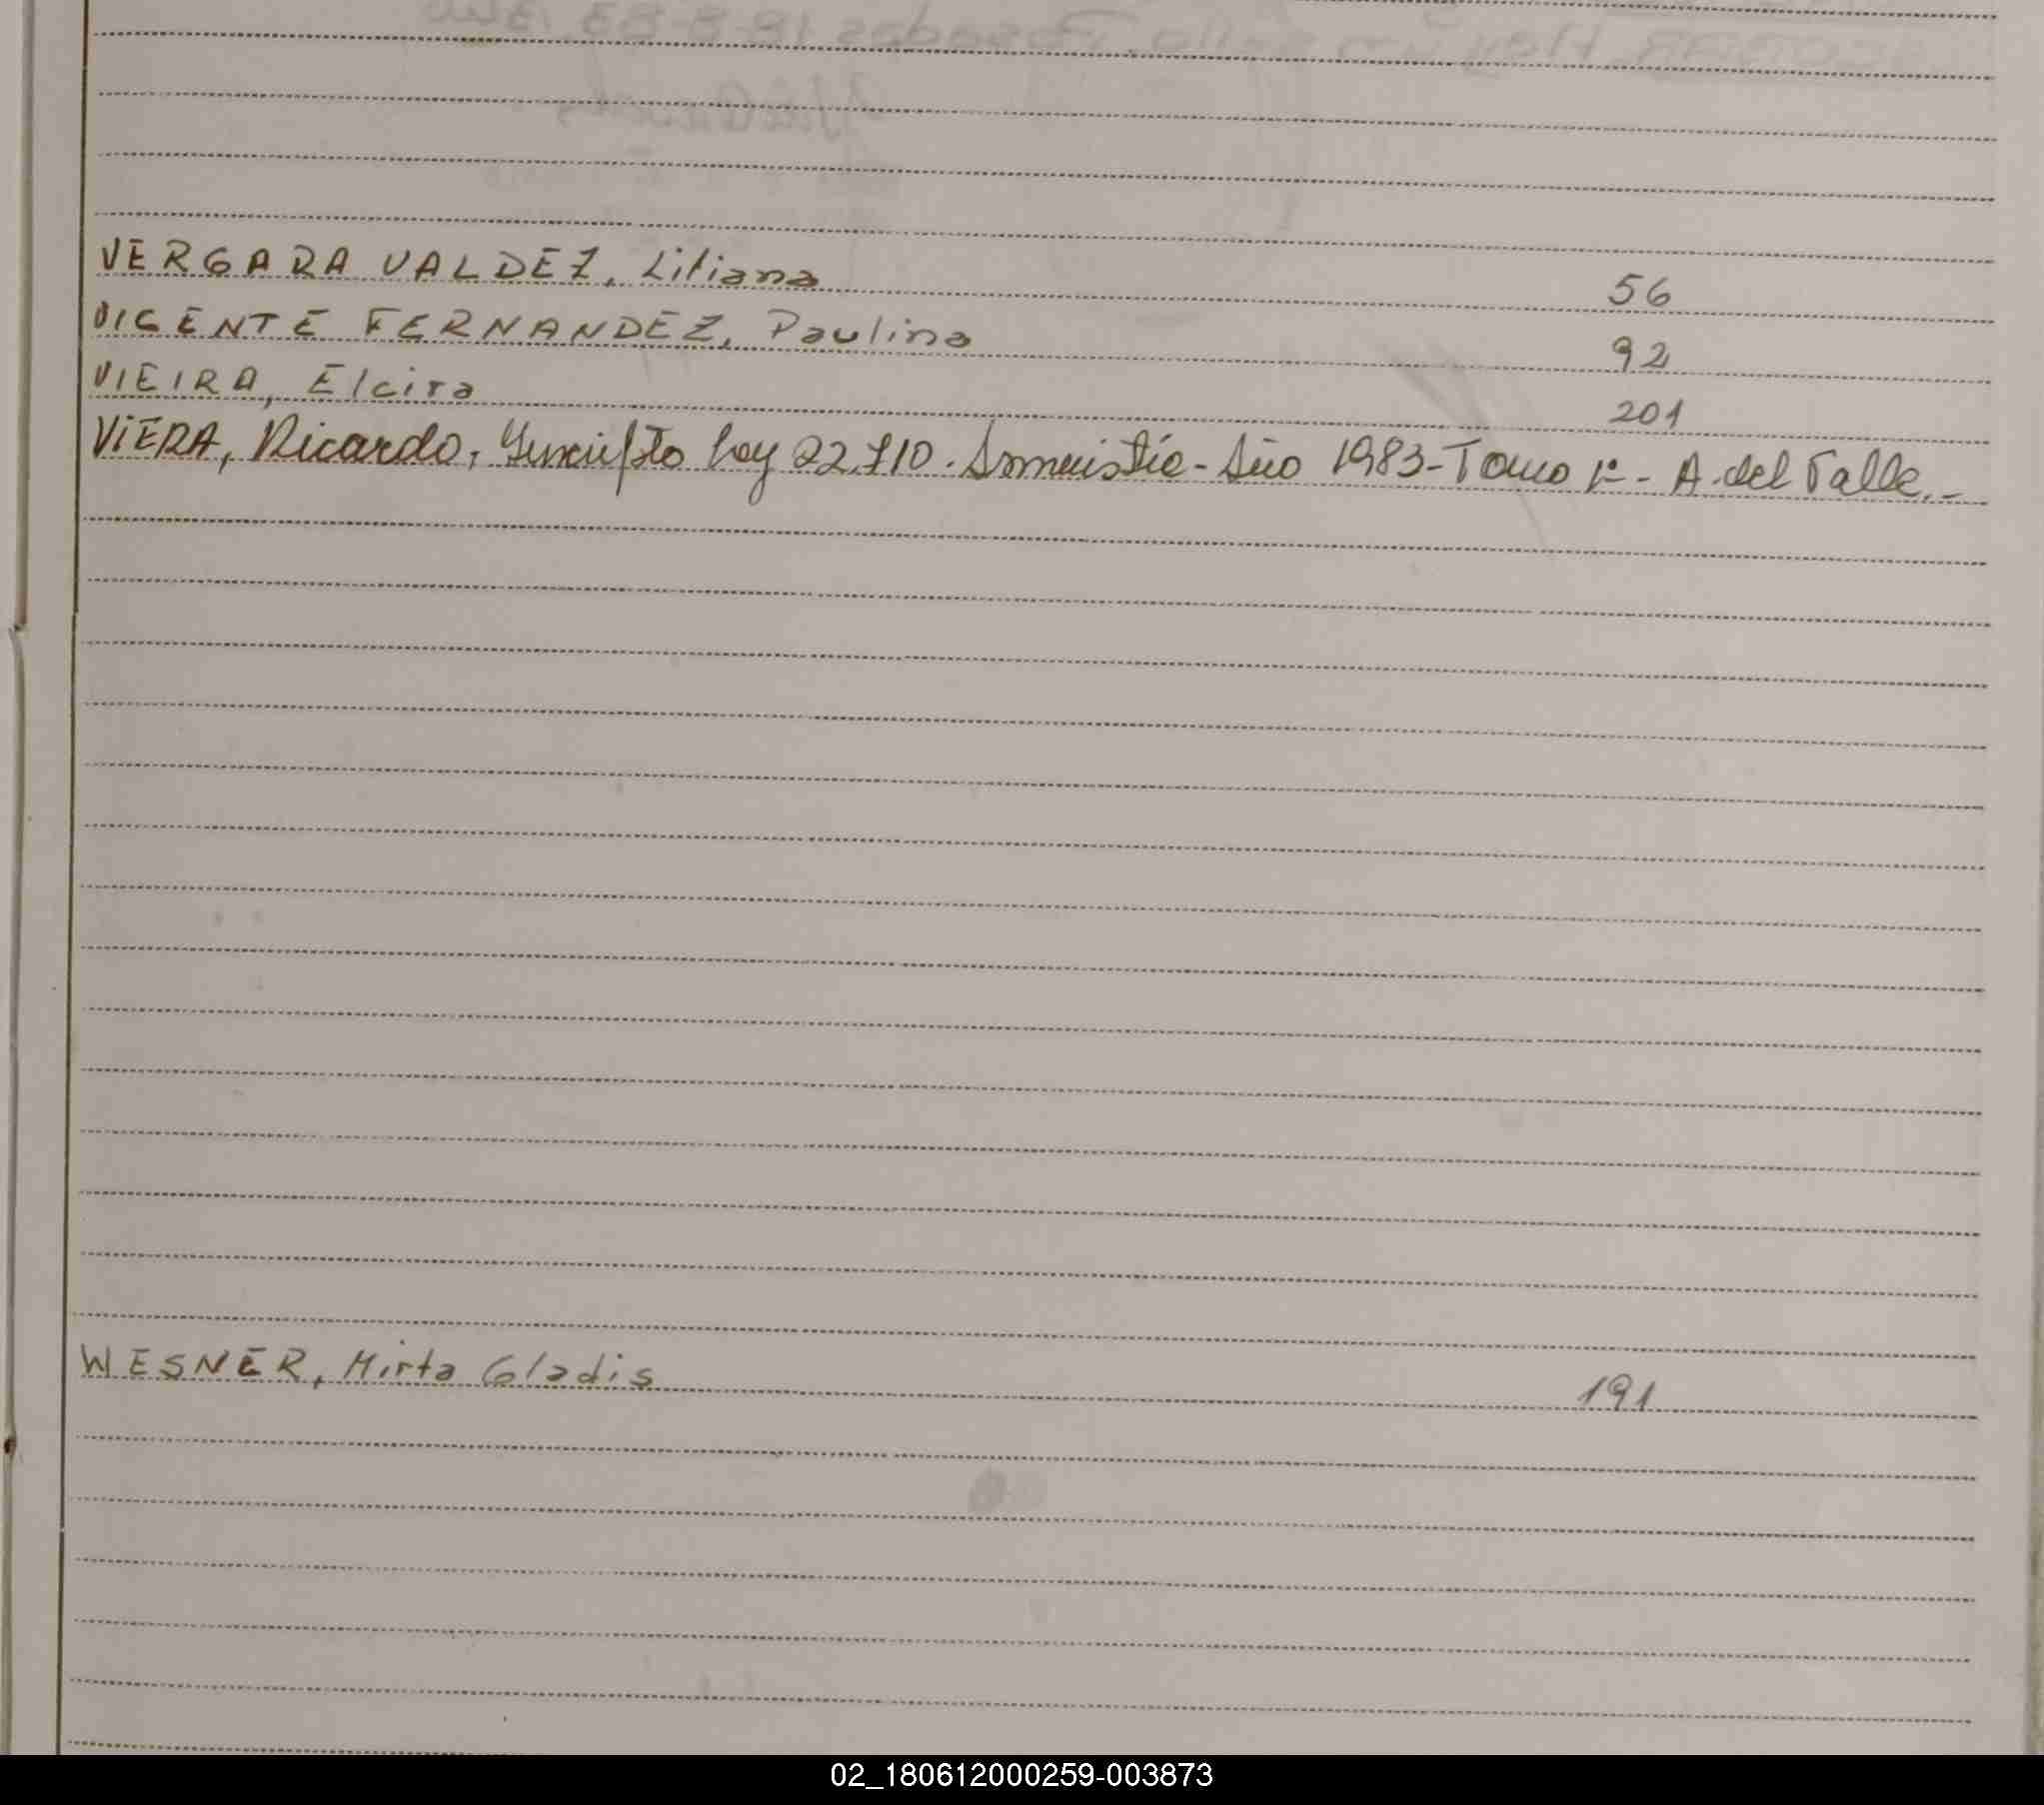 VERGARA VALDEZ, Liliana 56
VICENTE FERNANDEZ, Paulina 92
VIEIRA, Elcira 201
VIERA, Ricardo, Inscripto ley 22.710. Amnistía - Año 1983 - Tomo 1º - A. del Valle.-
WESNER, Mirta Gladis 191
02_180612000259-003873